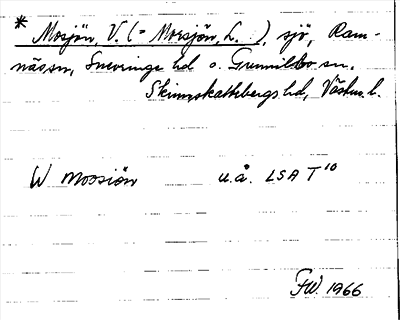 * Mosjön, V. (= Morsjön, L. ), sjö, Ram-
näs sn, Snevringe hd o. Gunnilbo sn,
Skinnskattebergs hd, Västm. l.
W Mossiön u.å. LSA T 10
FW. 1966